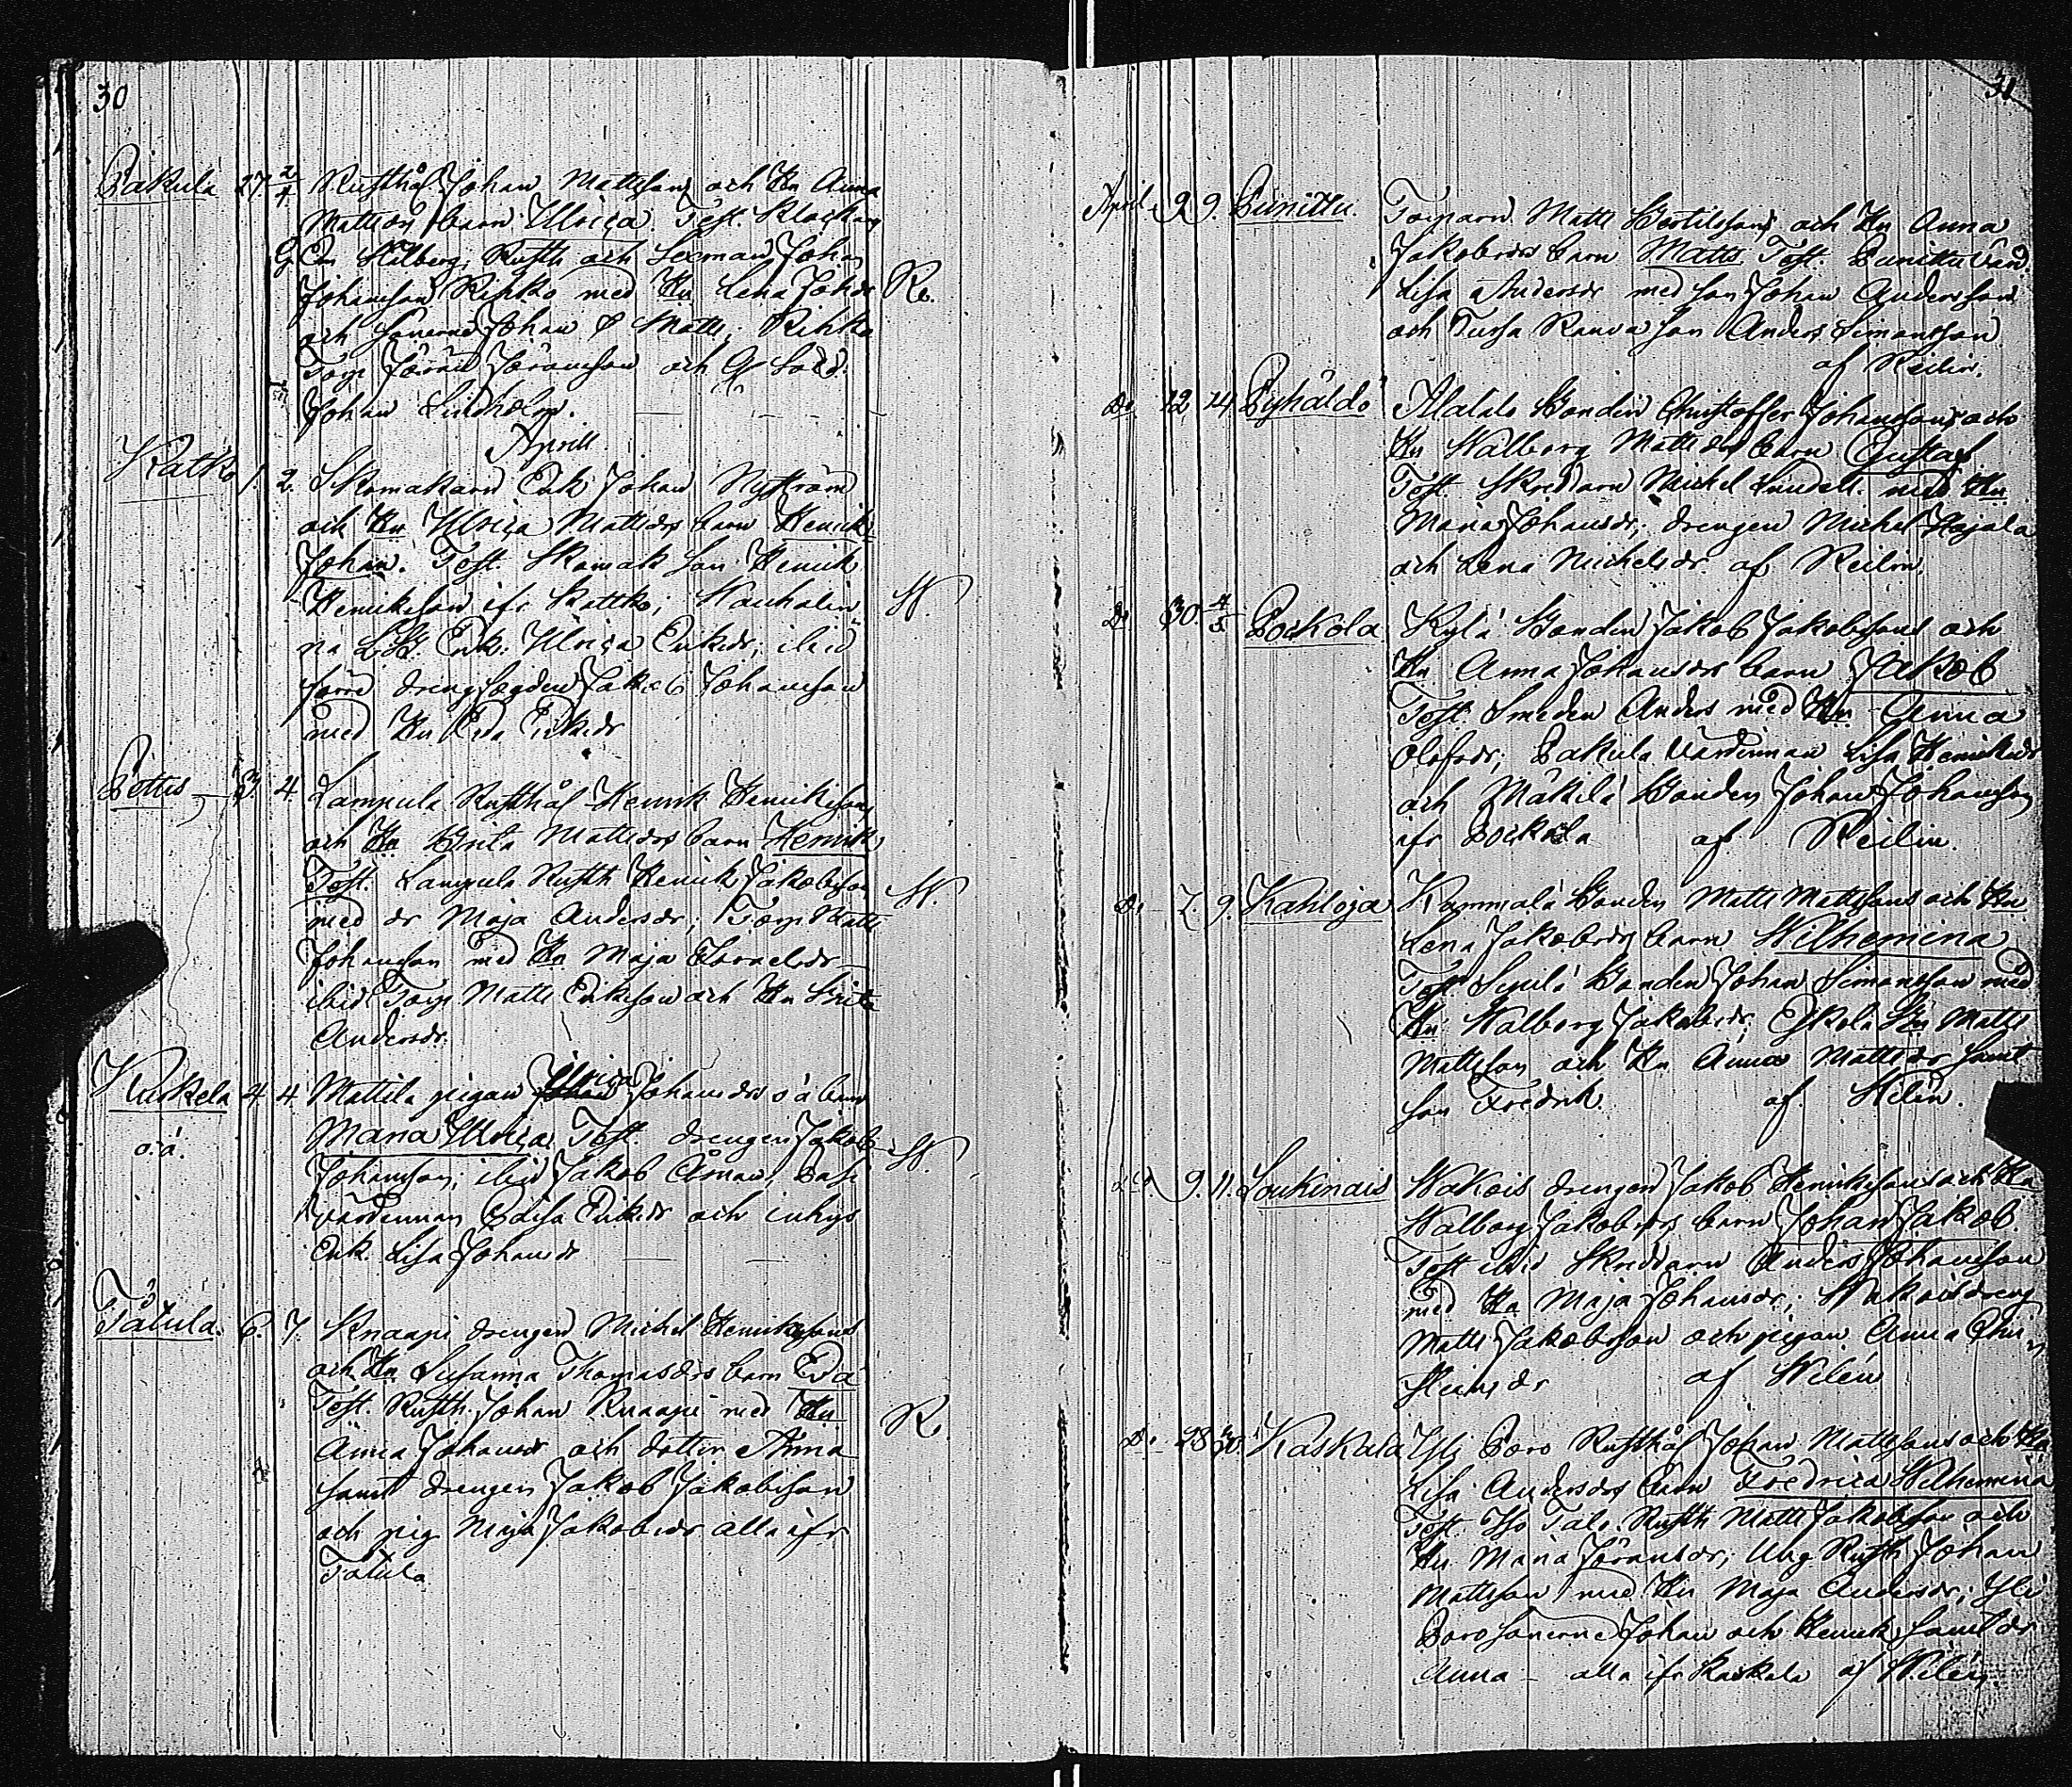 30
Pakula 27. 2/4 Rusthål. Johan Mattssons och Hu Anna
Mattsdrs barn Ulrica. Test. Klockarn
G Em Hilberg; Rusth och Johan
Johansson Rihko med Hu Lena Johdr Re.
och sonerne Johan & Matts; Rihko
Torp Jöran Jöransson och Gl Sold.
Johan Lindholm.
Aprill
Katko 1. 2. Skomakarn Erik Johan Nyström
och Hu Ulrica Mattsdrs barn Henrik
Johan. Test. Skomak son Henrik
Henriksson ifr Kattko; W.
na Enk. Ulrica Eriksdr; ibid
förre drengfogden Jakob Johansson
med Hu Eva Eriksdr
Pettis 3. 4. Lampula Rusthål Henrik Henrikssons
och Hu Brita Mattsdrs barn Henrik
Test. Lampula Rusth Henrik Jakobsson W.
med dr Maja Andersdr; Torp Matts
Johansson med Hu Maja Israelsdr
ibid Torp Matts Eriksson och Hu Brita
Andersdr.
Kuskela 4 4 Mattila pigan Ulrica Johansdrs o ä barn
o: ä. Maria Ulrica Test. drengen Jakob W.
Johansson; ibid Jakob Åman; Pasi
värdinnan Caisa Eriksdr och inhys
Enk. Lisa Johansdr
Tåtula. 6. 7. Knaapi drengen Michel Henrikssons
och Hu Susanna Thomasdrs barn Eva
Test. Rusth. Johan Knaapi med Hu R.
Anna Johansdr och dotter Anna
samt drengen Jakob Jakobsson
och pig Maja Jakobsdr alla ifr
Tåtula
31
April 9 9. Punittu. Torparn Matts Bertilssons och Hu Anna
Jakobsdrs barn Matts Test. Punittu värd.
Lisa Andersdr med son Johan Andersson
och Tussa Rauva son Anders Simonsson
af Reilin.
Do 12 14 Pyhäldö Alatalo Bonden Christoffer Johanssons och
Hu Walborg Mattsdrs barn Gustaf
Test. Skreddarn Michel Lundell med Hu
Maria Johansdr; drengen Michel Hajala
och Lena Michelsdr af Reilin.
Do 30. 4/5 Pockola Kylä Bonden Jakob Jakobssons och
Hu Anna Johansdrs barn Jakob
Test. Smeden Anders med Hu Anna
Olofsdr; Pakula värdinnan Lisa Henriksdr
och Mäkilä Bonden Johan Johansson
ifr Pockola af Reilin.
Do 7. 9. Kahloja Kammala Bonden Matts Mattssons och Hu
Lena Jakobsdrs barn Wilhemina
Test Bonden Johan Simonsson med
Hu Walborg Jakobsdr; Eskola Matts
Mattsson och Hu Anna Mattsdr samt
son Fredrik. af Wilén.
do. 9. 11. Loukinais Wakois drengen Jakob Henrikssons och Hu
Walborg Jakobsdrs barn Johan Jakob
Test ibid Skreddarn Anders Johansson
med Hu Maja Johansdr; Wakois dreng
Matts Jakobsson och pigan Anna Chri
stiansdr af Wilén
Do 28 30. Kaskala Yli Poro Rusthål Johan Mattssons och Hu
Lisa Andersdrs barn Fredrica Wilhemina
Test. Iso Talo Rusth Matts Jakobsson och
Hu Maria Jöransdr; Ung Rusth Johan
Mattsson med Hu Maja Andersdr; Yli
Poro sonerne Johan och Henrik samt dr
Anna – alla ifr Kaskala af Wilén.